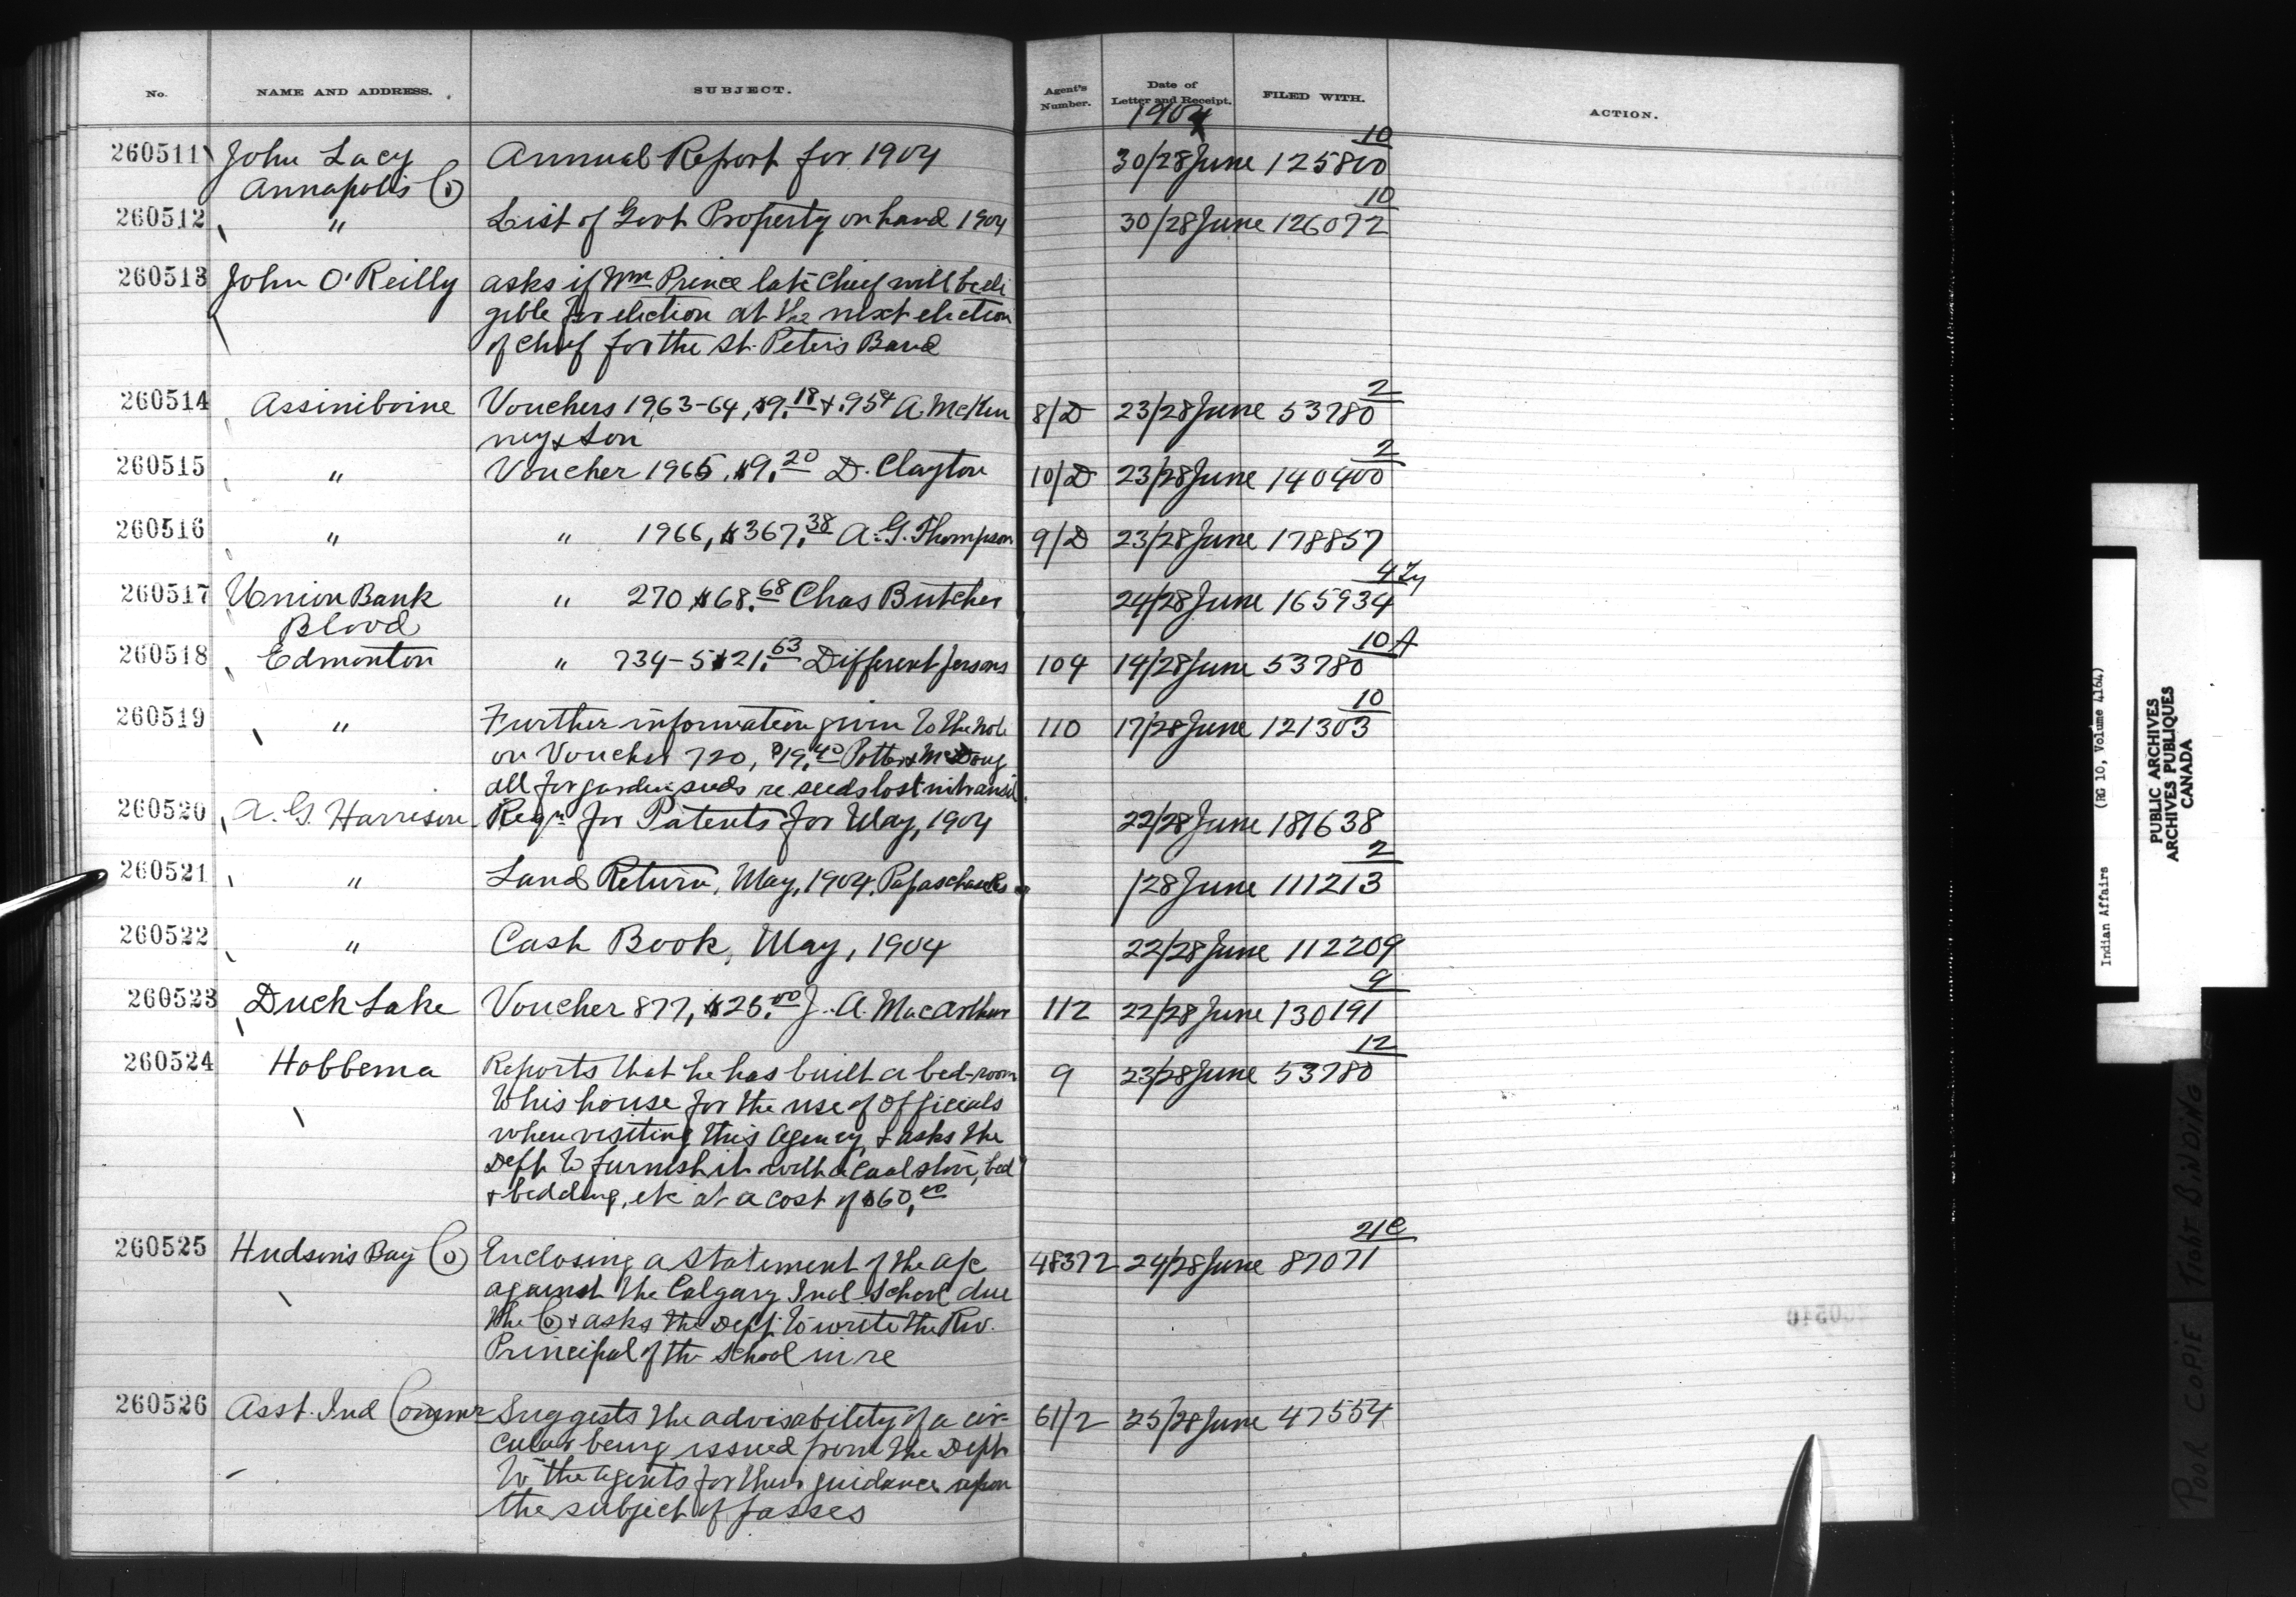 No. NAME AND ADDRESS. SUBJECT. Agent's Number. Date of Letter and Receipt. FILED WITH. ACTION.
1904
10
260511 John Lacy Annual Report for 1904 30/28 June 125800
Annapolis Co
10
260512 " List of Govt Property on hand 1904 30/28 June 126072
260513 John O'Reilly asks if Wm Prince late Chief will be eli
gible for election at the next election
of Chief for the St. Peter's Band
2
260514 Assiniboine Vouchers 1963-64, $9.18 + .95 A. McKen 8/D 23/28 June 53780
ney & Son
2
260515 " Voucher 1965, $9.20 D. Clayton 10/D 23/28 June 140400
260516 " " 1966, $367.38 A. G. Thompson 9/D 23/28 June 178857
4
260517 Union Bank " 270 $68.68 Chas Butcher 24/28 June 165934
Blood
10A
260518 Edmonton " 734-5 $21.63 Different persons 104 14/28 June 53780
10
260519 " Further information given to the note 110 17/28 June 121303
on Voucher 720, $19.40 Potter & McDoug
all for garden seeds re seeds lost in transit
260520 A. G. Harrison Reqn for Patents for May, 1904 22/28 June 181638
2
260521 " Land Return, May, 1904, Papaschase /28 June 111213
260522 " Cash Book, May, 1904 22/28 June 112209
9
260523 Duck Lake Voucher 877, $25.00 J. A. MacArthur 112 22/28 June 130191
12
260524 Hobbema Reports that he has built a bed-room 9 23/28 June 53780
to his house for the use of Officials
when visiting this Agency, & asks the
Dept to furnish it with a coal stove, bed
& bedding, etc at a cost of $60.00
21C
260525 Hudson's Bay Co Enclosing a statement of the a/c 48372 24/28 June 87071
against the Calgary Ind School due
the Co & asks the Dept. to write the Rev.
Principal of the School in re
260526 Asst. Ind Commr Suggests the advisability of a cir- 61/2 25/28 June 47554
cular being issued from the Dept
to the Agents for their guidance upon
the subject of passes
Indian Affairs (RG 10, Volume 4164)
PUBLIC ARCHIVES
ARCHIVES PUBLIQUES
CANADA
POOR COPIE TIGHT BINDING